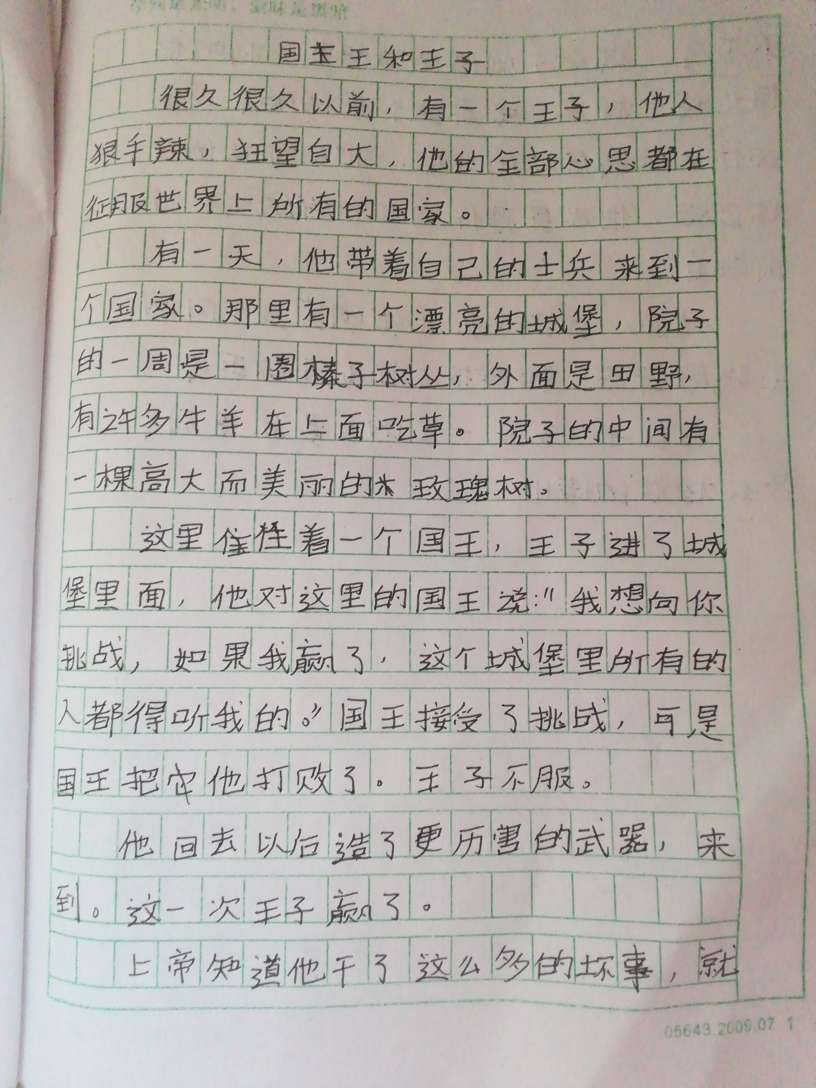 国王和王子
很久很久以前，有一个王子，他人
狠手辣，狂望自大，他的全部心思都在
征服世界上所有的国家。
有一天，他带着自己的士兵来到一
个国家。那里有一个漂亮的城堡，院子
的一周是一圈榛子树丛，外面是田野，
有许多牛羊在上面吃草。院子的中间有
一棵高大而美丽的玫瑰树。
这里住着一个国王，王子进了城
堡里面，他对这里的国王说："我想向你
挑战，如果我赢了，这个城堡里所有的
人都得听我的。"国王接受了挑战，可是
国王把他打败了。王子不服。
他回去以后造了更历害的武器，来
到。这一次王子赢了。
上帝知道他干了这么多的坏事，就
05643.2009.07 1